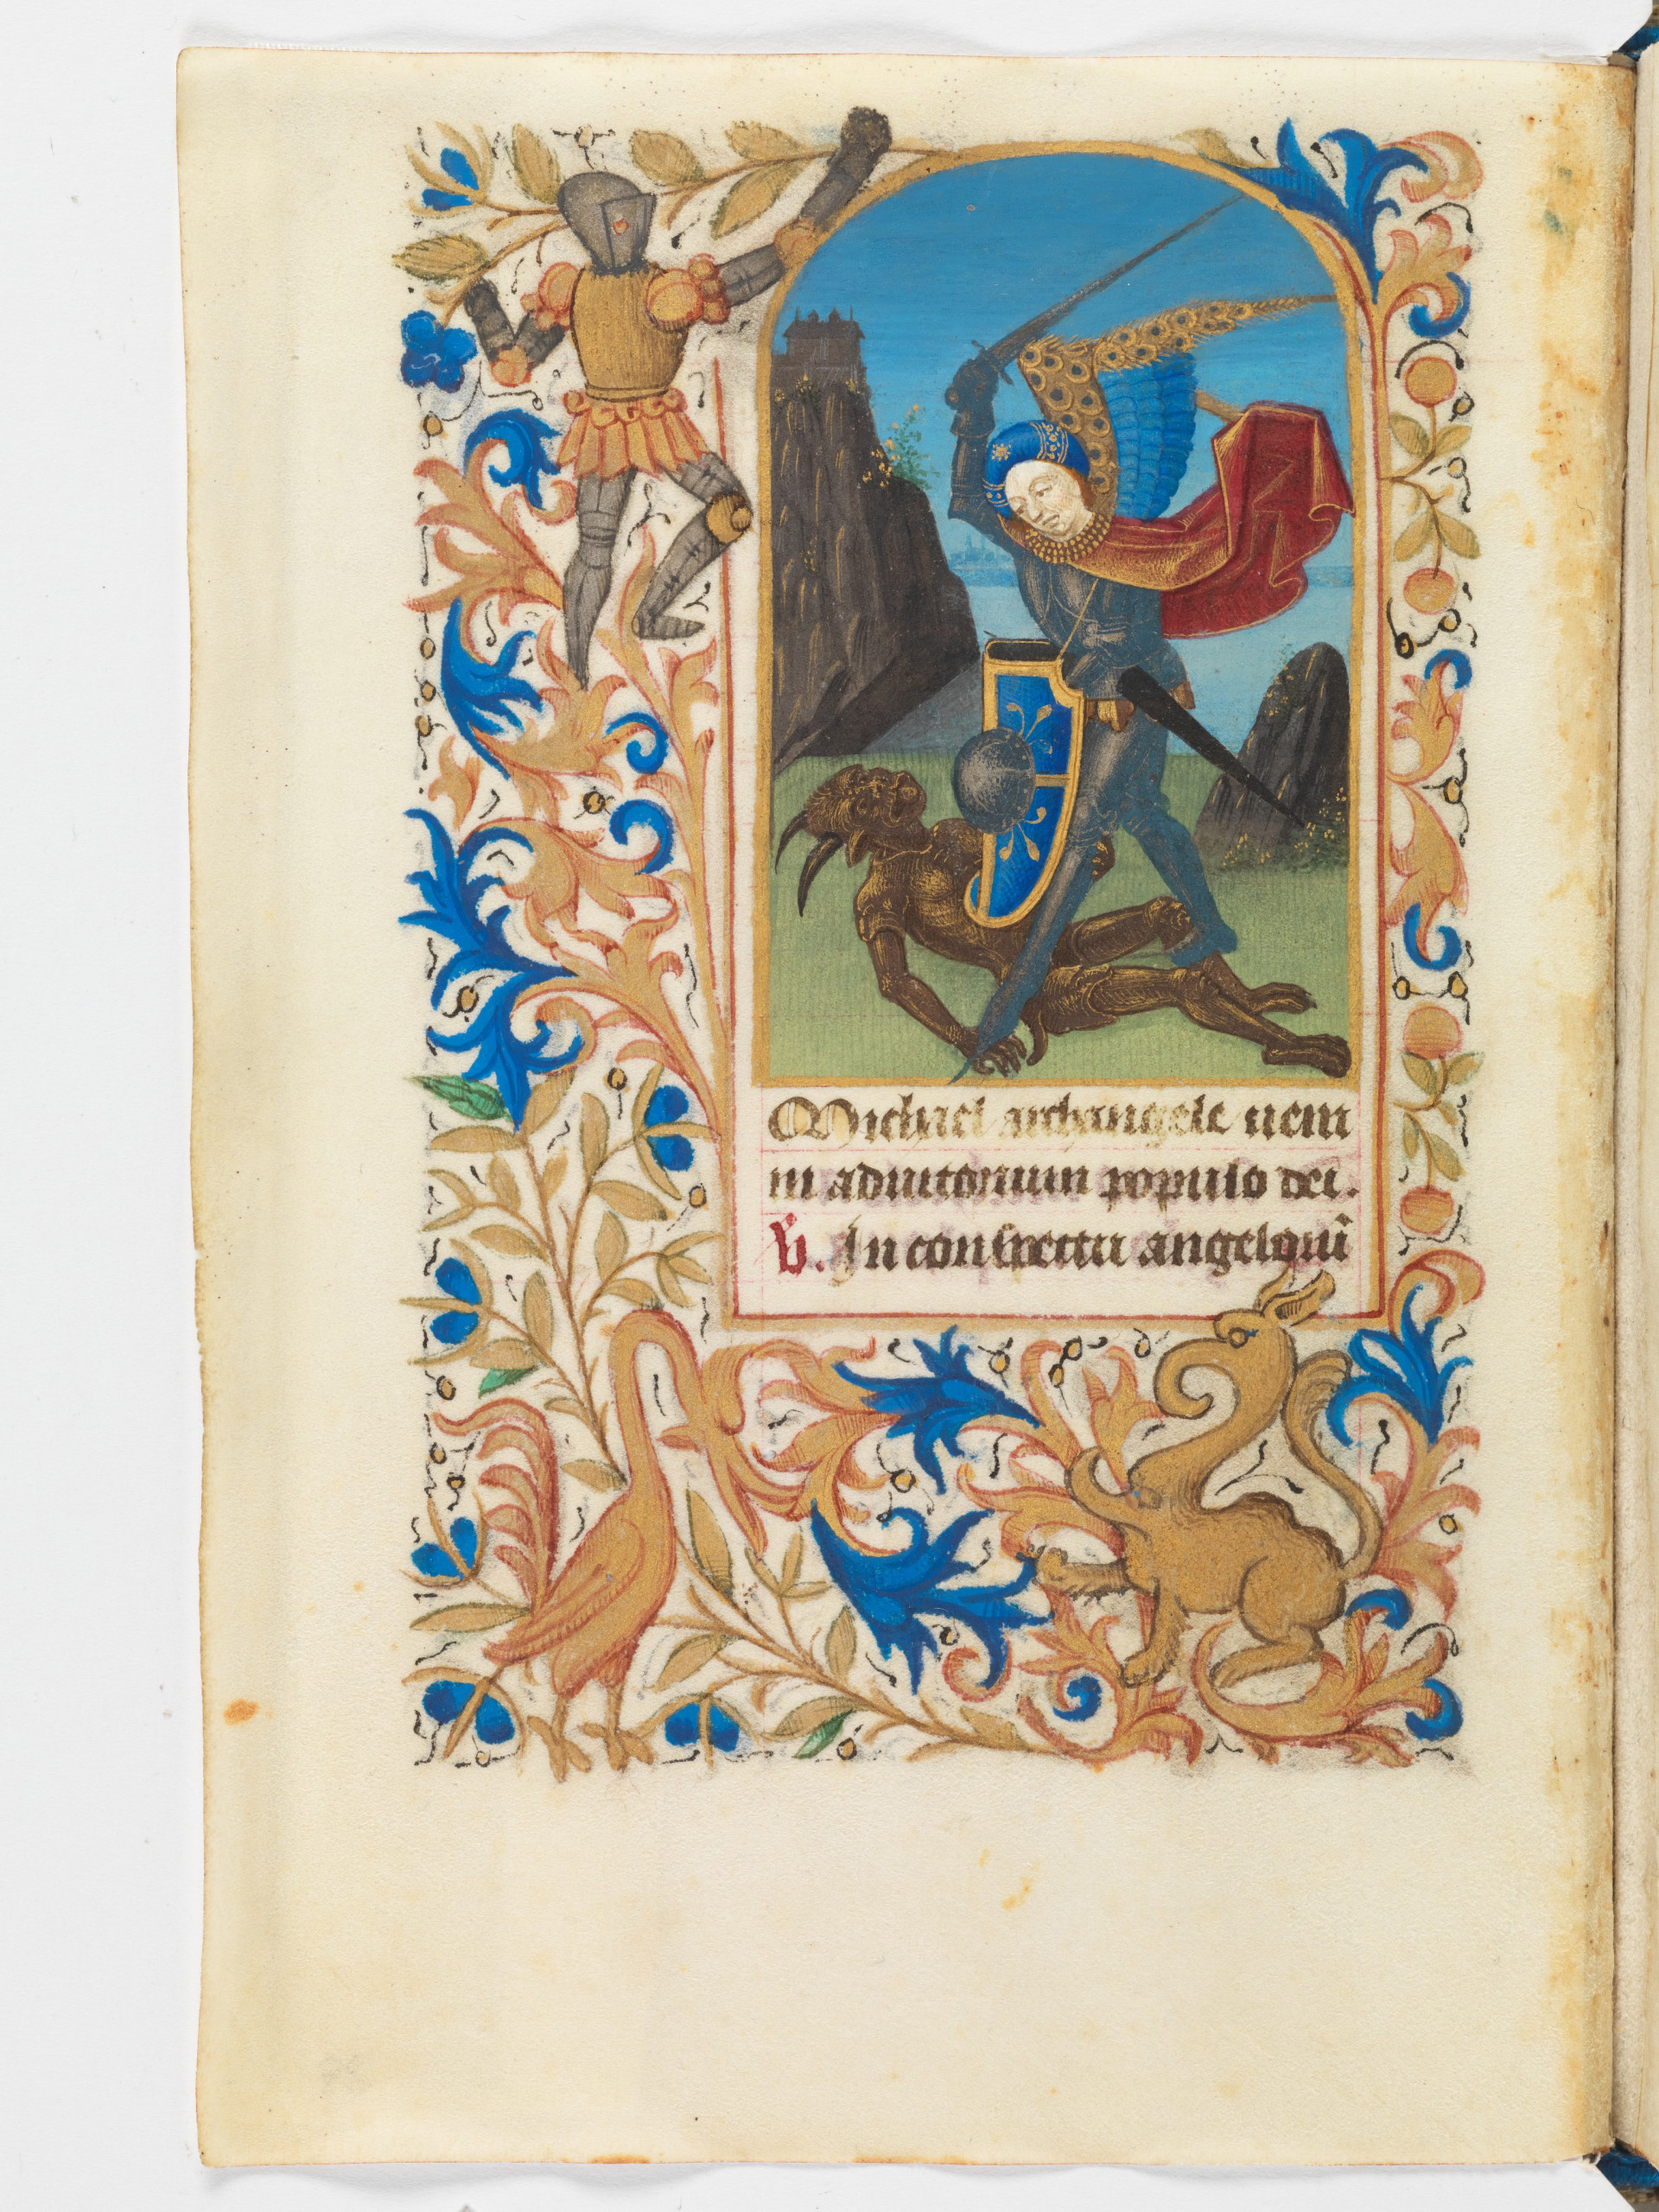 Michael archangele veni
in adiutorium populo dei.
V. In conspectu angeloru̅